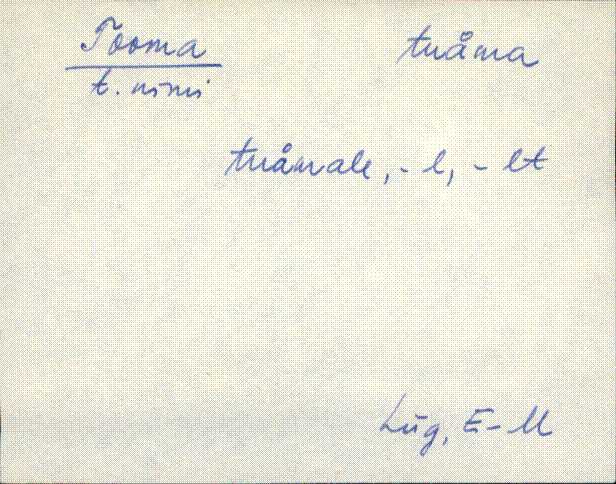 Tooma tuåma
t. nimi
tuåmale, - l, - lt
Lüg, E-M